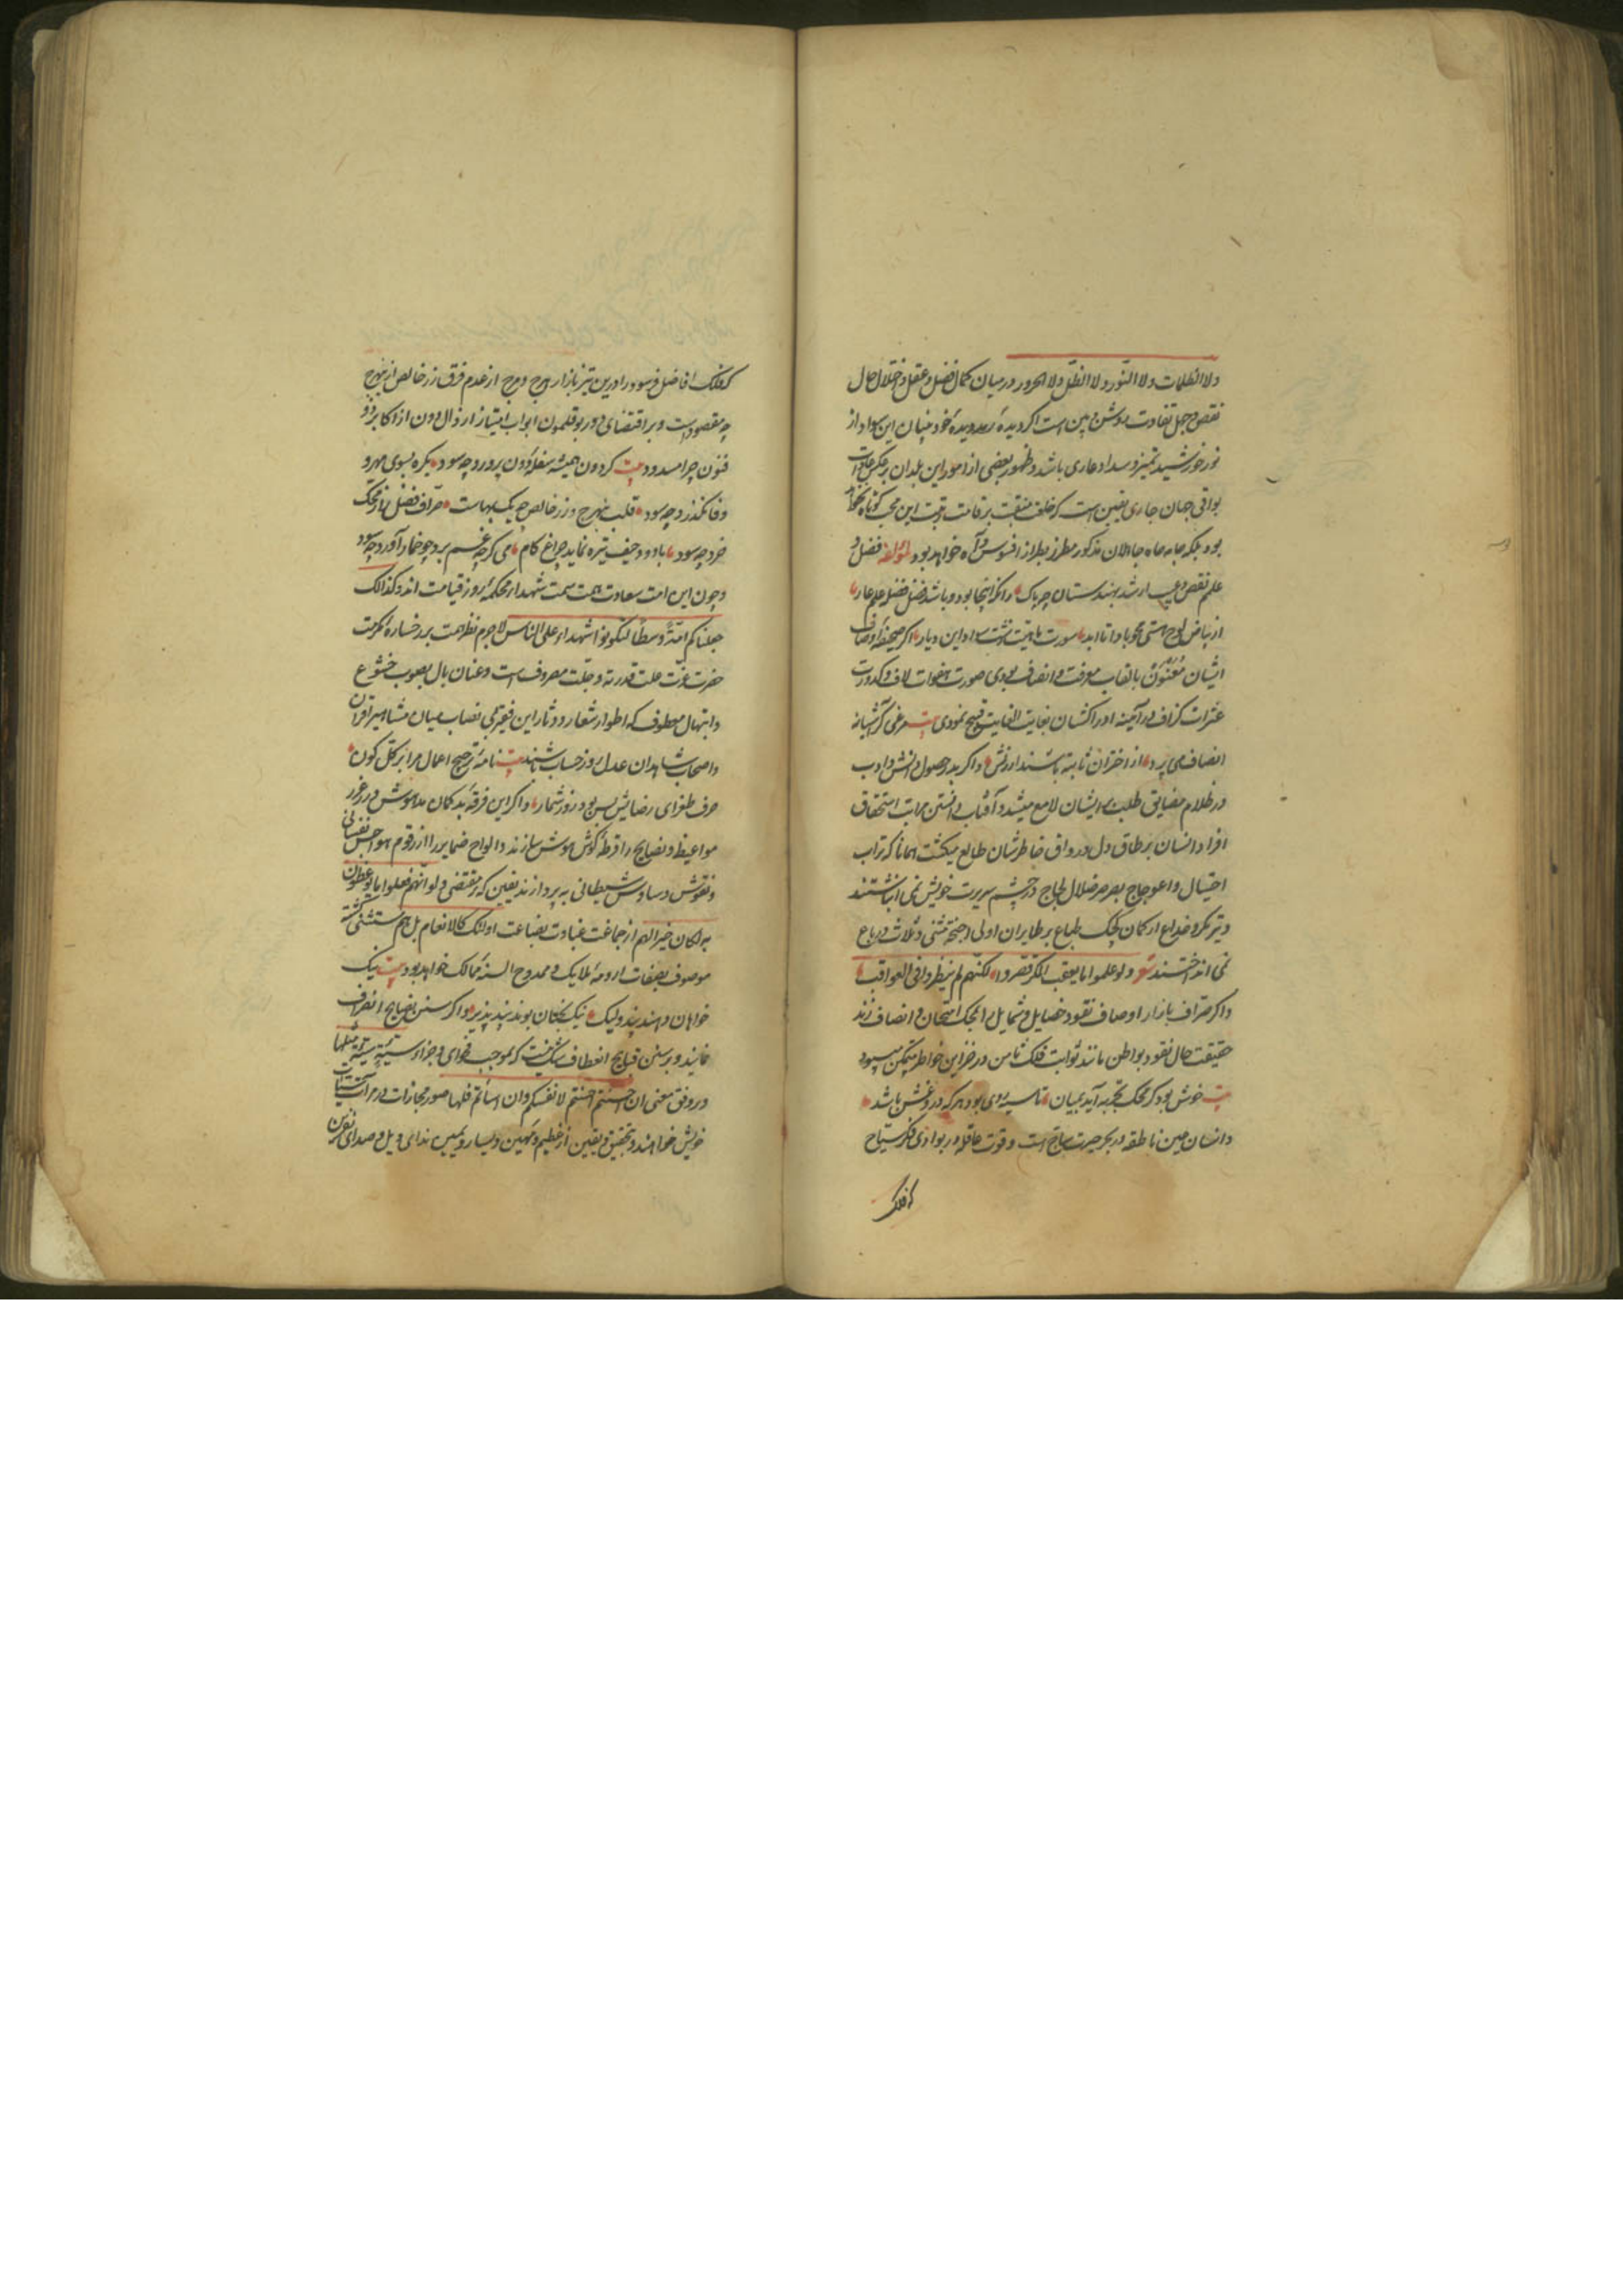 ولا الظلمات ولا النور ولا الظل ولا الحرور در میان کمال فضل و عقل و اختلال حال
نقص و جهل تفاوت روشن و مبین است اگر دیدهٔ دیدهٔ خود بینان این سواد از
نور خورشید تمیز و سداد عاری باشد و ظهور بعضی از امور این بلدان بر عکس
بواقی جهان جاری یقین است که خلعت منقبت بر قامت رتبت این محب کوتاه
بود بلکه جامه جاه جاهلان مذکور مطرز بطراز افسوس و آه خواهد بود لمؤلفه فضل و
علم نقص و عیب ار شد بهندستان چه باک وانکه اینجا بود و باشد فضل فضل علم عار
از بیاض لوح هستی محو بادا تا ابد صورت ماهیت سواد این دیار اگر صحیفهٔ اوصاف
ایشان معنون بالقاب معرفت و انصاف بودی صورت هفوات لاف و کدورت
عثرات گزاف در آئینه ادراکشان بغایت الغایت قبیح نمودی بیت مرغی کز آشیانه
انصاف می پرد از اختران ثابته باشند ارزنش و اگر بدر حصول دانش و ادب
در ظلام مضایق طلب بر ایشان لامع میشد و آفتاب دانستن مراتب استحقاق
افراد انسان بر طاق دل و رواق خاطرشان طالع میگشت همانا که تراب
احتیال و اعوجاج بصرصر ضلال لجاج در چشم سریرت خویش نمی انباشتند
و تیر مکر و خداع از کمان کجک طباع بر طایران اولی اجنحة مثنی و ثلاث و رباع
نمی انداختند شعر ولو علموا ما یعقب المکر قصروا ولکنهم لم ینظروا فی العواقب
و اگر صراف بازار اوصاف نقود خصایل و شمایل را بمحک امتحان و انصاف زند
حقیقت حال نقود بواطن مانند ثوابت فلک ثامن در خزاین خواطر متمکن میبود
بیت خوش بود گر محک تجربه آید بمیان تا سیه روی بود هر که در و غش باشد
و انسان عین ناطقه در بحر حیرت سابح است و قوت عاقله در بوادی فکر سیاح
که فلک
که فلک افاضل فرسود را درین تیز بازار هرج و مرج از عدم فرق زر خالص از نبهرج
چه مقصودست و بر اقتضای دور بوقلمون ابواب امتیاز ارذال دون از اکابر ذو
فنون چرا مسدود بیت گردون همیشه سفلهٔ دون پرورد چه سود یکره بسوی مهر و
وفا نگذرد چه سود قلب نبهرج و زر خالص چو یک بهاست صراف فضل از محک
خرد چه سود با دود حیف تیره نماید چراغ کام می گر چه غم برد چو خمار آورد چه سود
و چون این امت سعادت سمت شهدا محکمهٔ روز قیامت اند و کذلک
جعلناکم امة وسطا لتکونوا شهداء علی الناس لاجرم نظر همت بر رخساره مکرمت
حضرت عزت جلت قدرته و جلت مصروف است و عنان بال بصوب خشوع
و ابتهال معطوف که اطوار شعار و دثار این فیه نصاب میان مشاهیر اقران
و اصحاب شاهدان عدل روز حساب باشند بیت نامهٔ ترجیح اعمال مرا بر کل کون
حرف طغرای رضایش بس بود روز شمار و اگر این فرقهٔ بد کمان مدهوش درر غرر
مواعیظ و نصایح را قرطهٔ گوش هوش سازند و الواح ضمایر را از رقوم هواجس نفسانی
و نقوش وساوس شیطانی به پردازند یقین که بمقتضی ولو انهم فعلوا ما یوعظون
به لکان خیرا لهم از جماعت غباوت بضاعت اولئک کالانعام بل هم مستثنی گشته
موصوف بصفات ارومهٔ ملایک و ممدوح السنهٔ ممالک خواهد بود بیت نیک
خواهان دهند پند ولیک نیک بختان بوند پند پذیر و اگر سنن نصایح انحراف
نمایند و بر سنن قبایح انعطاف شک نیست که بموجب فحوای و جزاء سیئة سیئة مثلها
و بر وفق معنی ان احسنتم احسنتم لانفسکم وان اسأتم فلها صور مجازات در مرآت
خویش خواهند و بتحقیق و یقین از عظیم و مهین و یسار و یمین ندای ویل و صدای نفرین